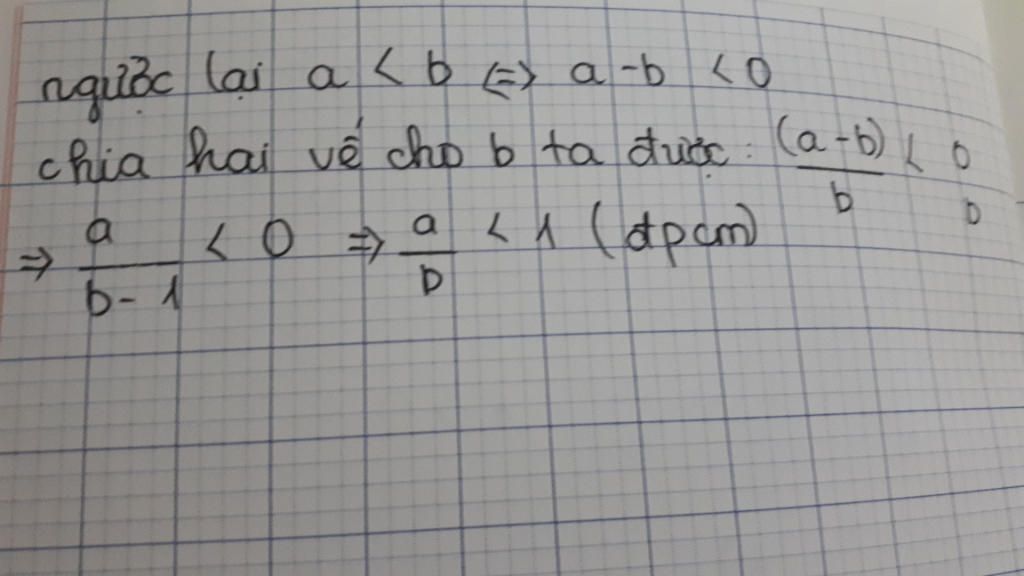 ngược lại a < b <=> a - b < 0
chia hai vế cho b ta được: (a-b)/b < 0/b
=> a/(b-1) < 0 => a/b < 1 (đpcm)